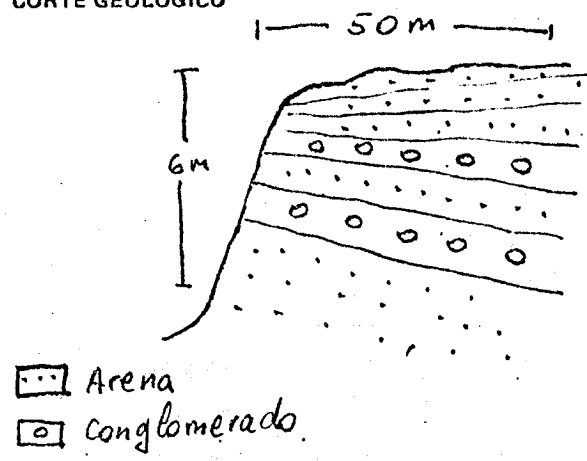 CORTE GEOLOGICO
50 m
6 m
Arena
Conglomerado.